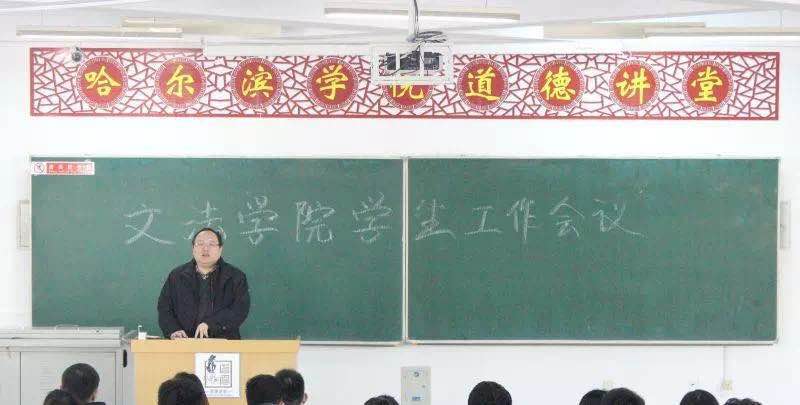 哈尔滨学院道德讲堂
文法学院学生工作会议